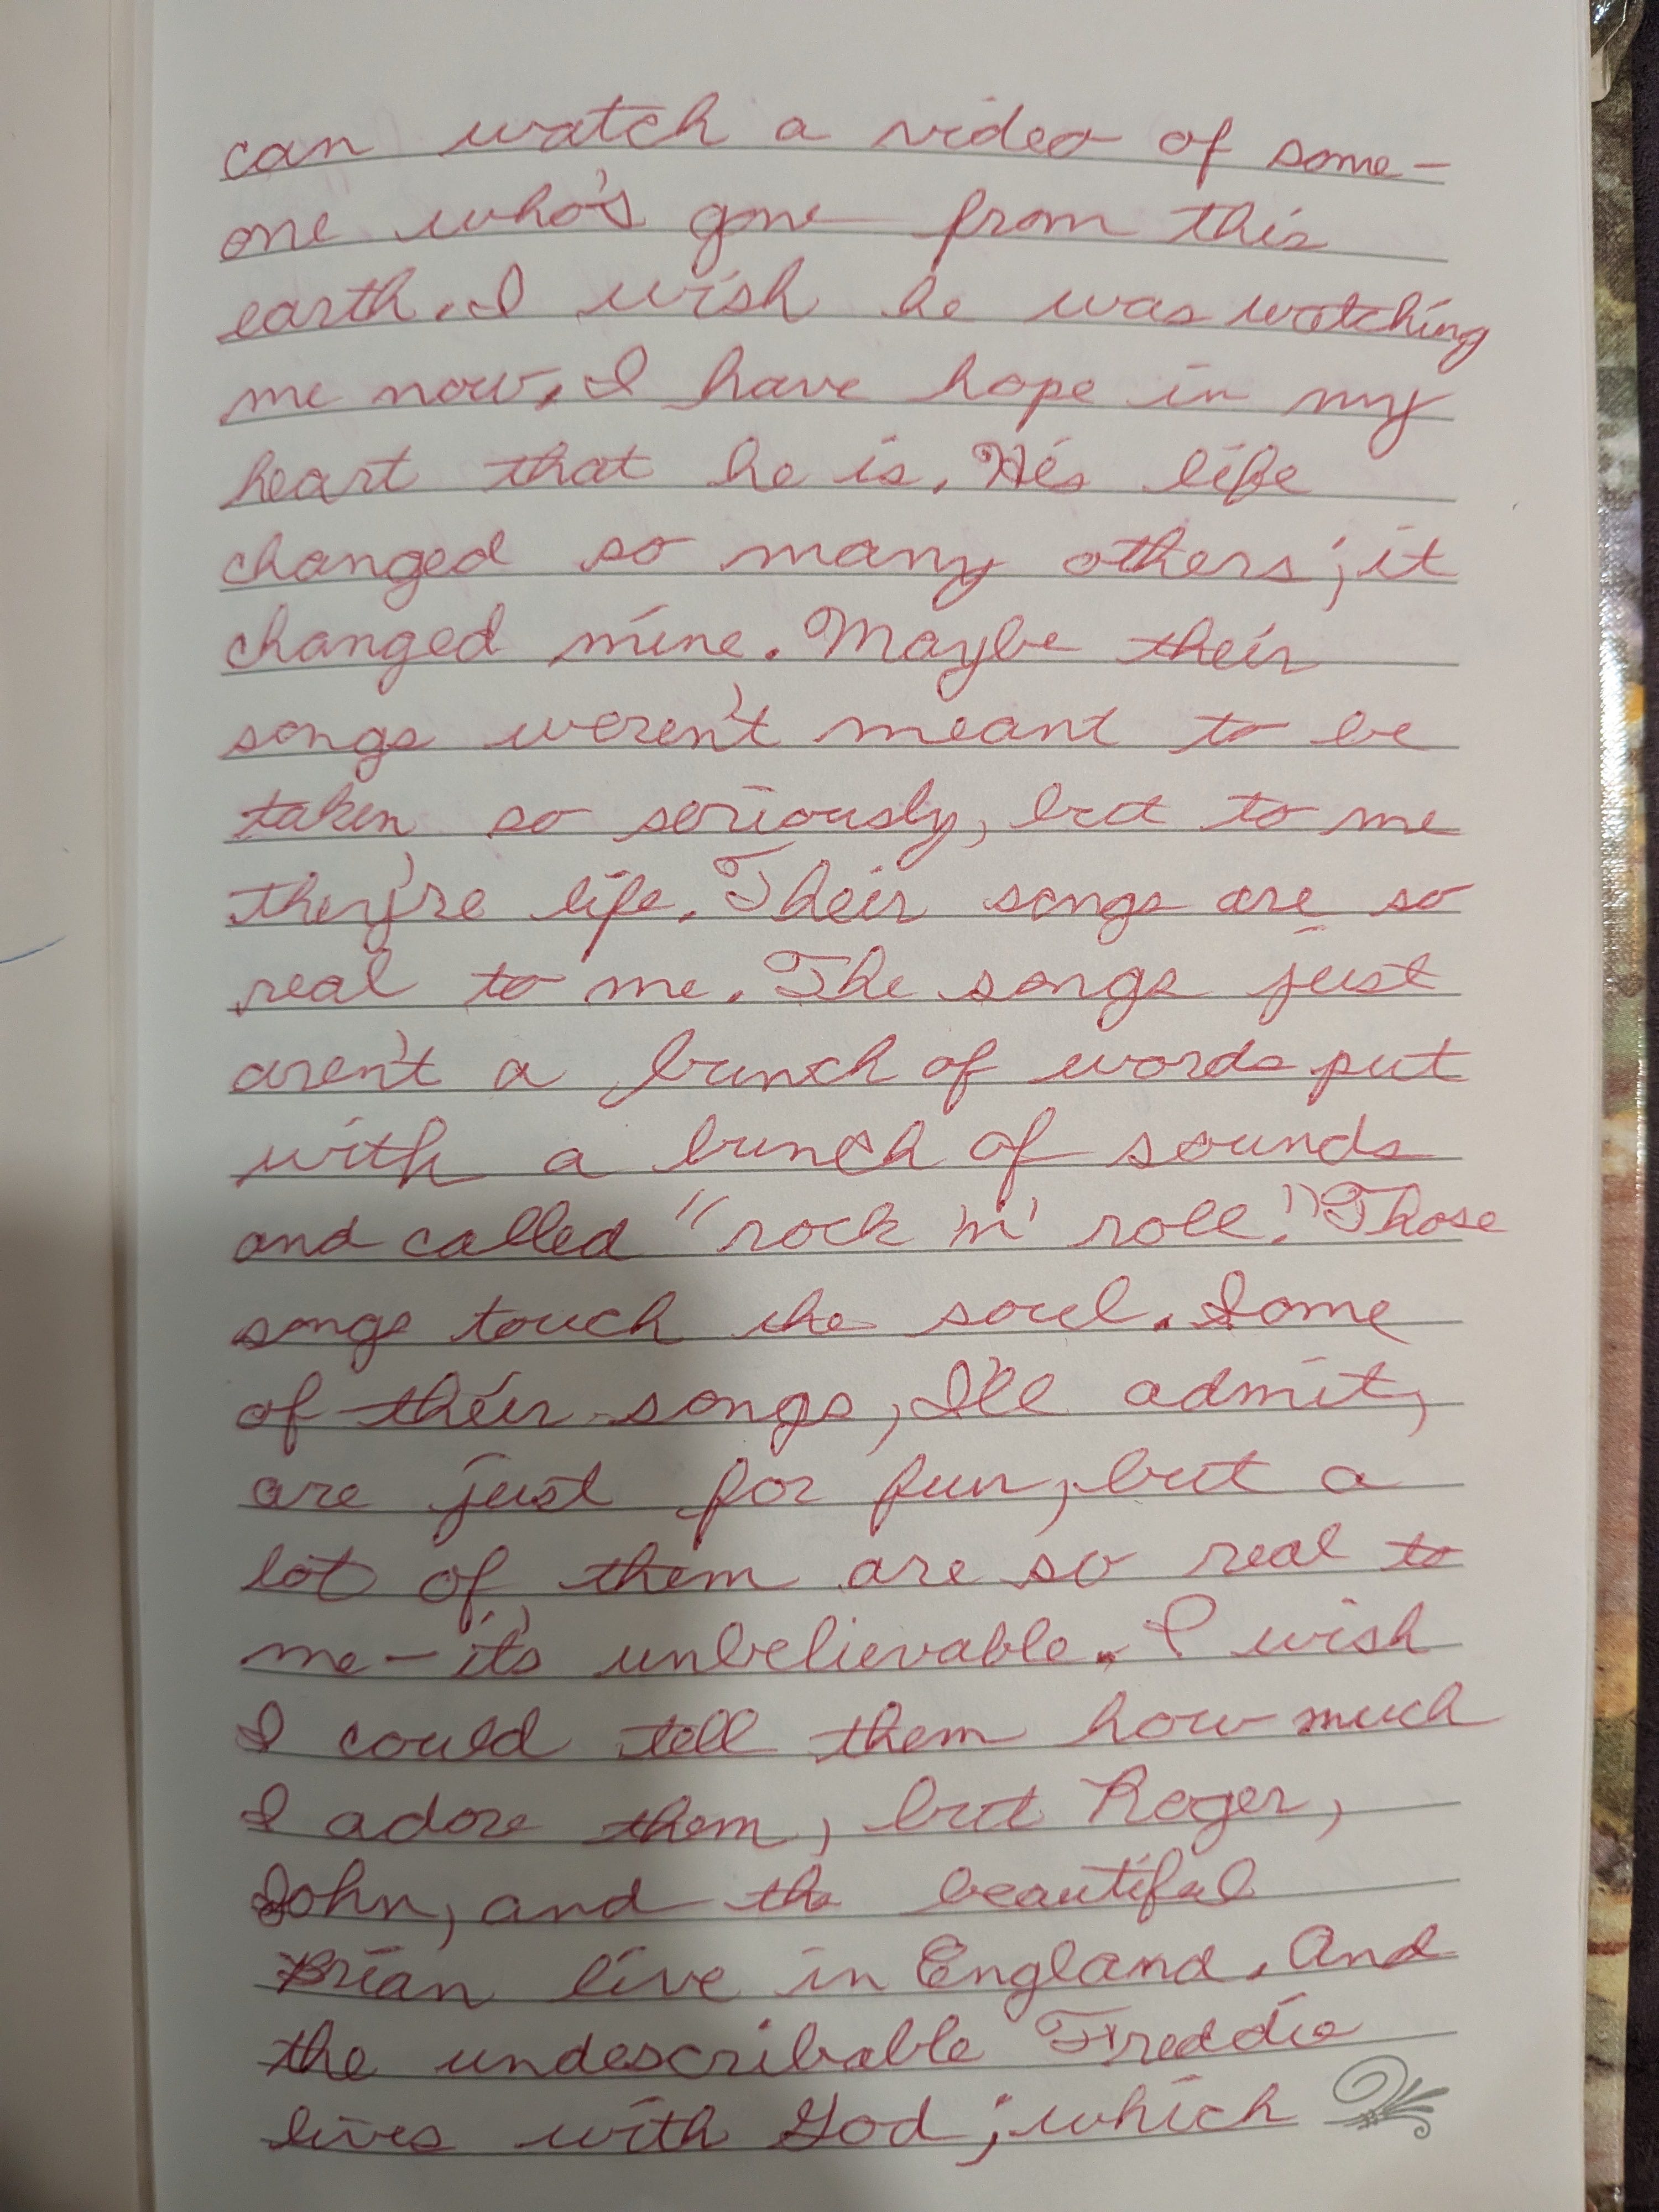 can watch a video of some-
one who's gone from this
earth. I wish he was watching
me now. I have hope in my
heart that he is. His life
changed so many others; it
changed mine. Maybe their
songs weren't meant to be
taken so seriously, but to me
they're life. Their songs are so
real to me. The songs just
aren't a bunch of words put
with a bunch of sounds
and called "rock 'n' roll." Those
songs touch the soul. Some
of their songs, I'll admit,
are just for fun, but a
lot of them are so real to
me – it's unbelievable. I wish
I could tell them how much
I adore them, but Roger,
John, and the beautiful
Brian live in England. And
the undescribable Freddie
lives with God; which